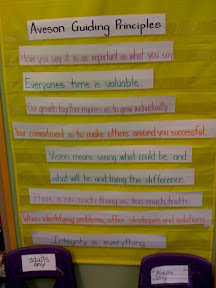 Aveson Guiding Principles
How you say it is as important as what you say
Everyones time is valuable.
Our growth together requires us to grow individually
Your commitment is to make others around you successful.
Vision means seeing what could be and
what will be and living the difference.
There is no such thing as too much truth
When identifying problems, offer strategies and solutions
Integrity is everything.
adults only!
Adults Only!